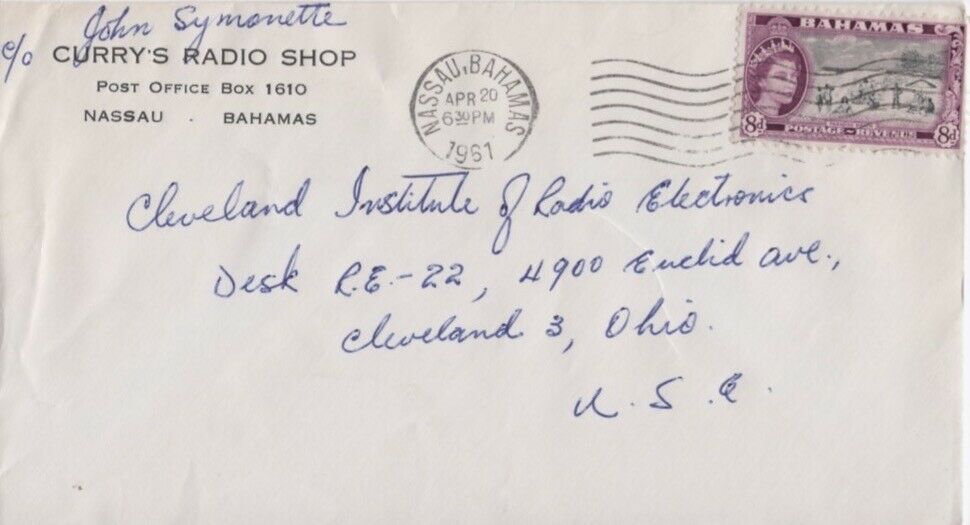 John Symonette
c/o CURRY'S RADIO SHOP
POST OFFICE BOX 1610
NASSAU . BAHAMAS
NASSAU, BAHAMAS
APR 20
6 30 PM
1961
BAHAMAS
8d POSTAGE & REVENUE 8d
Cleveland Institute of Radio Electronics
Desk R.E.-22, 4900 Euclid ave.,
Cleveland 3, Ohio.
U. S. a.